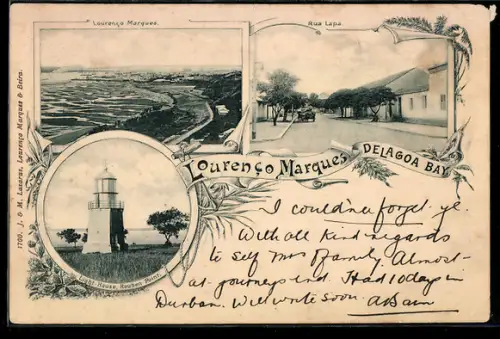 Lourenço Marques.
Rua Lapa
1700. J. & M. Lazarus, Lourenço Marques & Beira.
Lourenço Marques
DELAGOA BAY
Light House, Reuben Point.
I couldn'a forget ye.
With all kind regards
to self Mrs & family. Almost
at journeys end. Had 10 days in
Durban. Will write soon. ABain